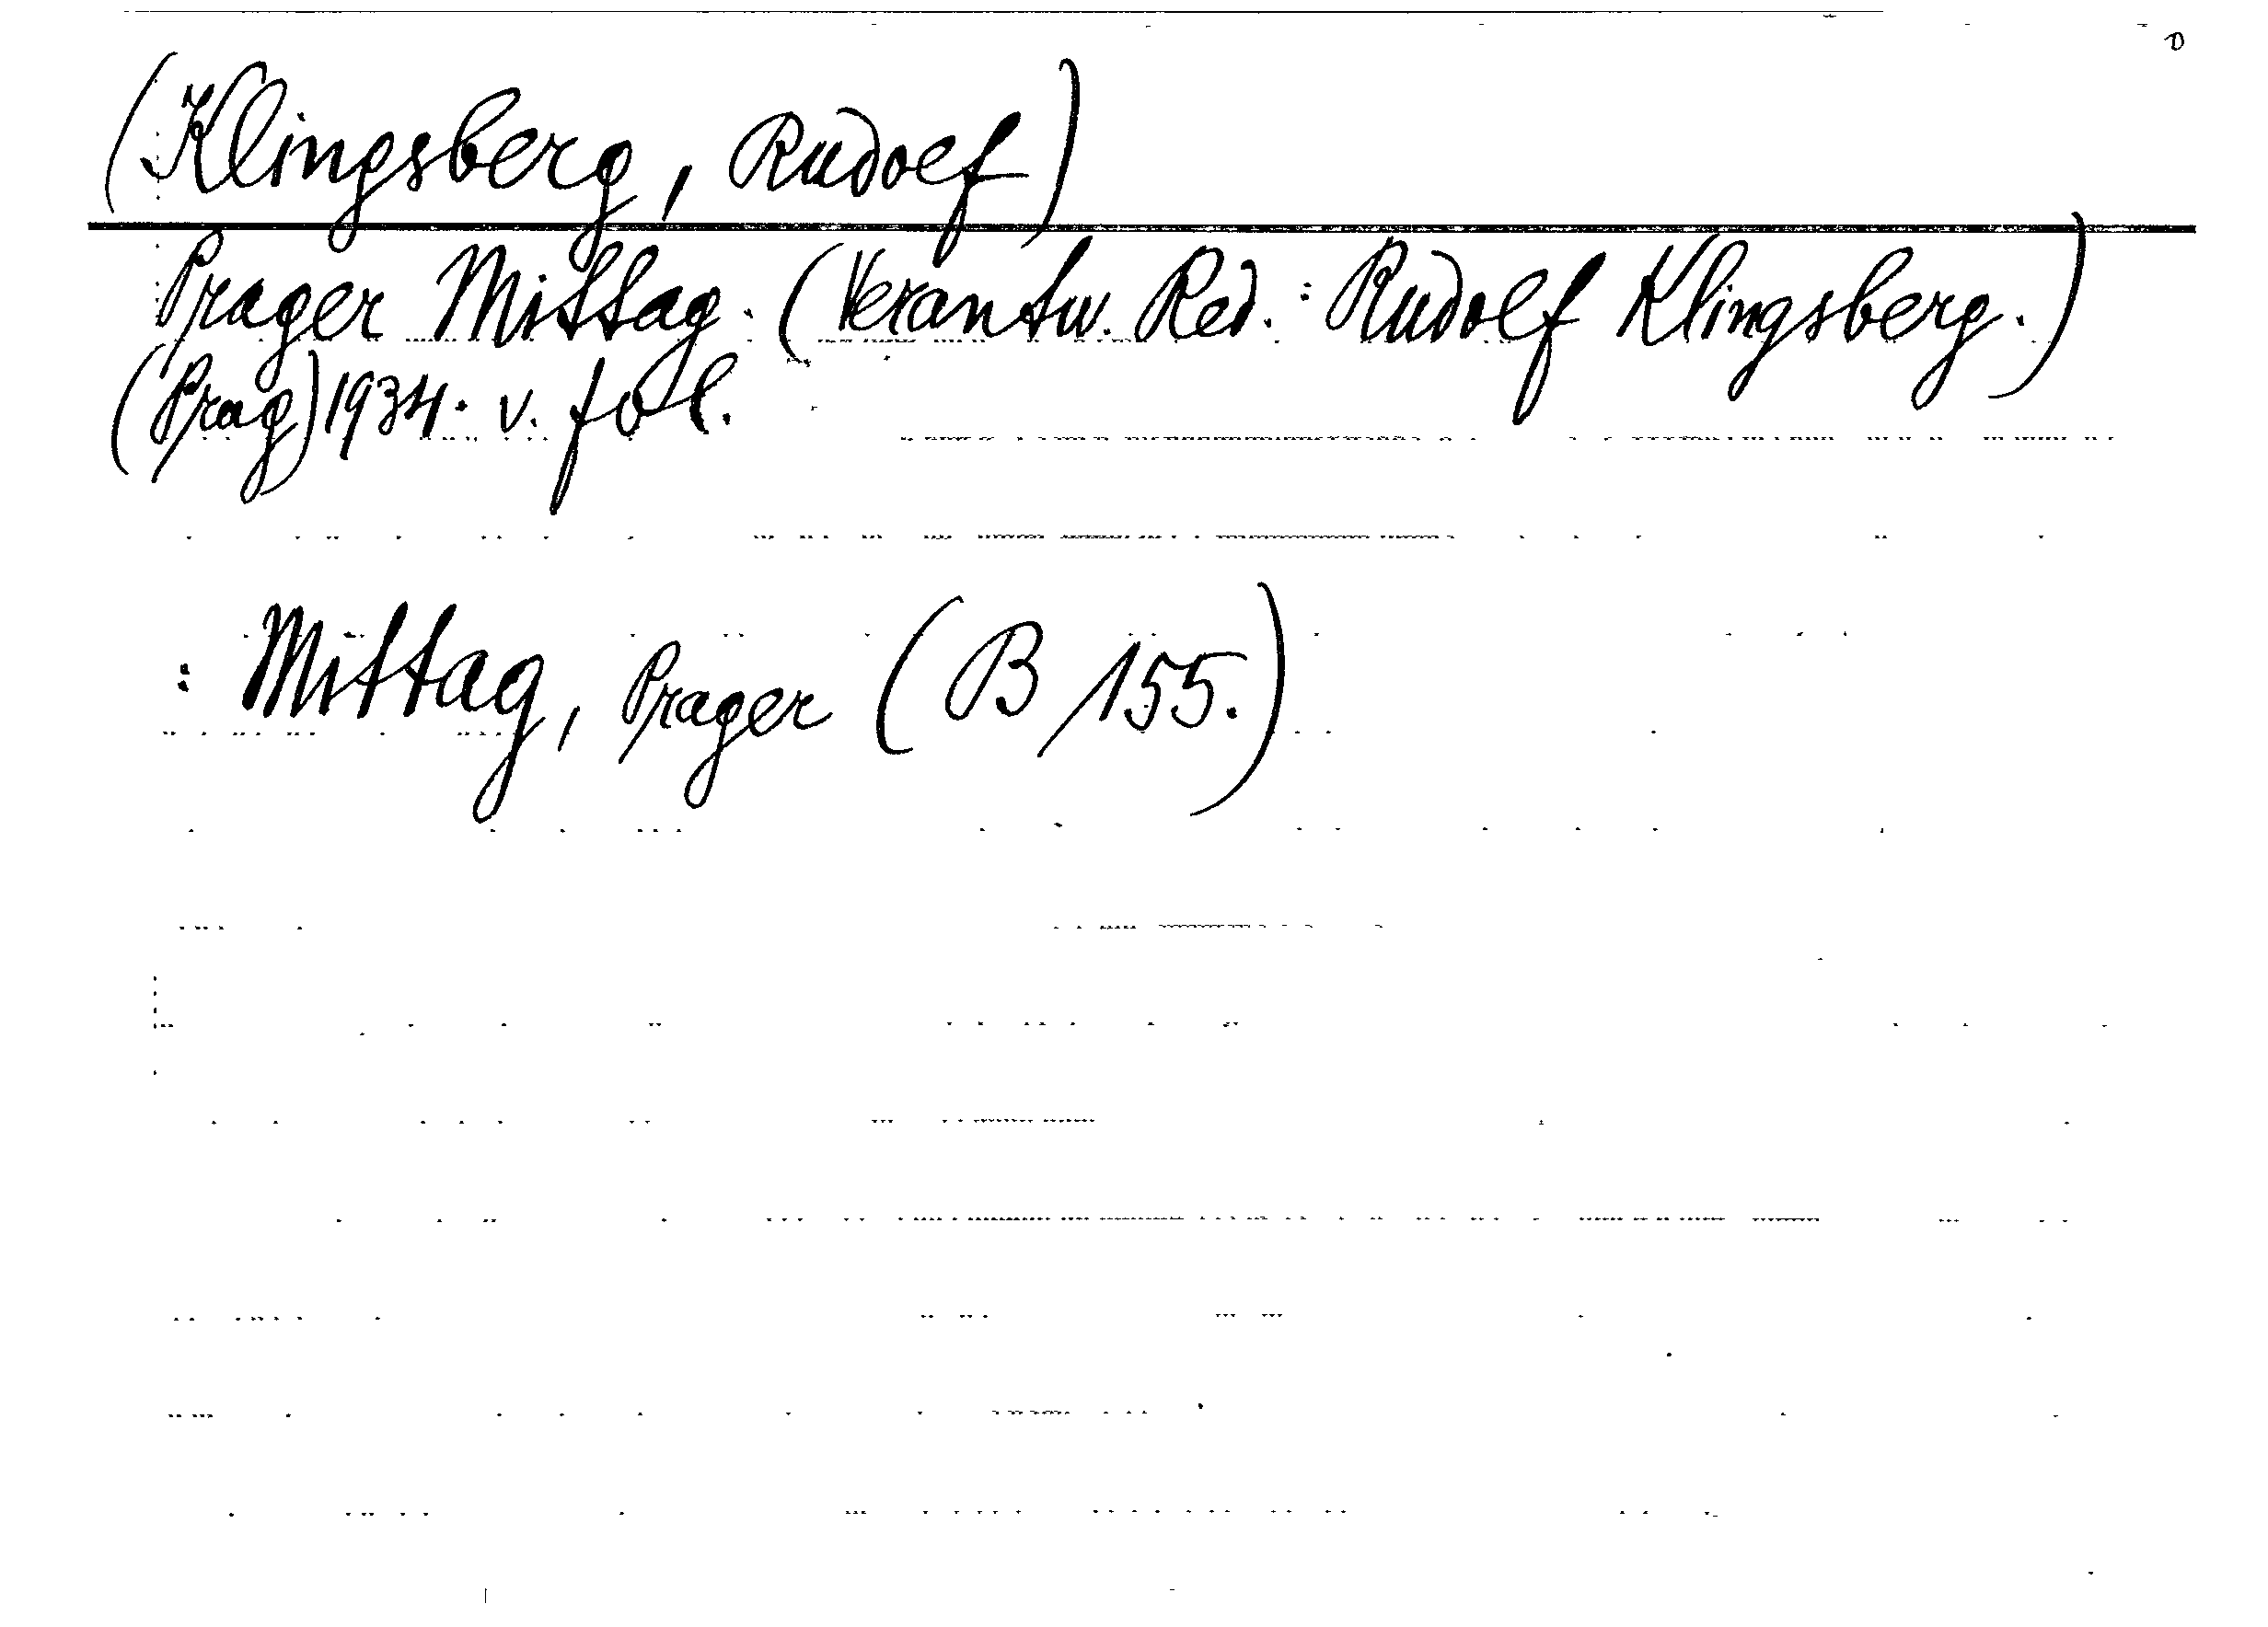 (Klingsberg, Rudolf)
Prager Mittag. (Verantw. Red.: Rudolf Klingsberg.)
(Prag) 1934. v. fol.
: Mittag, Prager (B/155.)